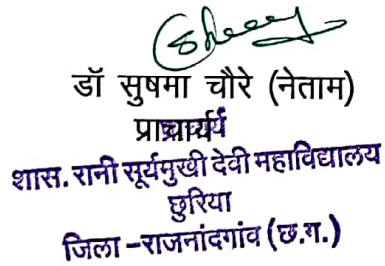 डॉ सुषमा चौरे (नेताम)
प्राचार्य
शास. रानी सूर्यमुखी देवी महाविद्यालय
छुरिया
जिला –राजनांदगांव (छ.ग.)